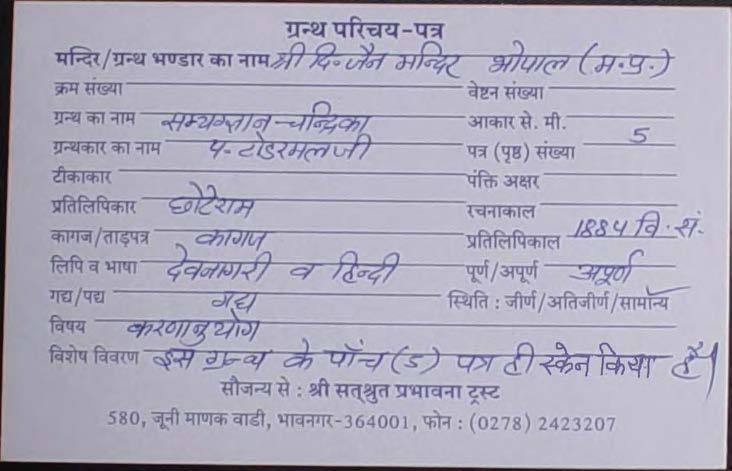 ग्रन्थ परिचय-पत्र
मन्दिर/ग्रन्थ भण्डार का नाम श्री दि॰ जैन मन्दिर भोपाल (म.प्र.)
क्रम संख्या वेष्टन संख्या
ग्रन्थ का नाम सम्यग्ज्ञान-चन्द्रिका आकार से. मी.
ग्रन्थकार का नाम पं- टोडरमलजी पत्र (पृष्ठ) संख्या 5
टीकाकार पंक्ति अक्षर
प्रतिलिपिकार छोटेराम रचनाकाल
कागज/ताड़पत्र कागज प्रतिलिपिकाल 1884 वि. सं.
लिपि व भाषा देवनागरी व हिन्दी पूर्ण/अपूर्ण अपूर्ण
गद्य/पद्य गद्य स्थिति : जीर्ण/अतिजीर्ण/सामान्य
विषय करणानुयोग
विशेष विवरण इस ग्रन्थ के पाँच (5) पत्र ही स्केन किया है।
सौजन्य से : श्री सत्श्रुत प्रभावना ट्रस्ट
580, जूनी माणक वाडी, भावनगर-364001, फोन : (0278) 2423207